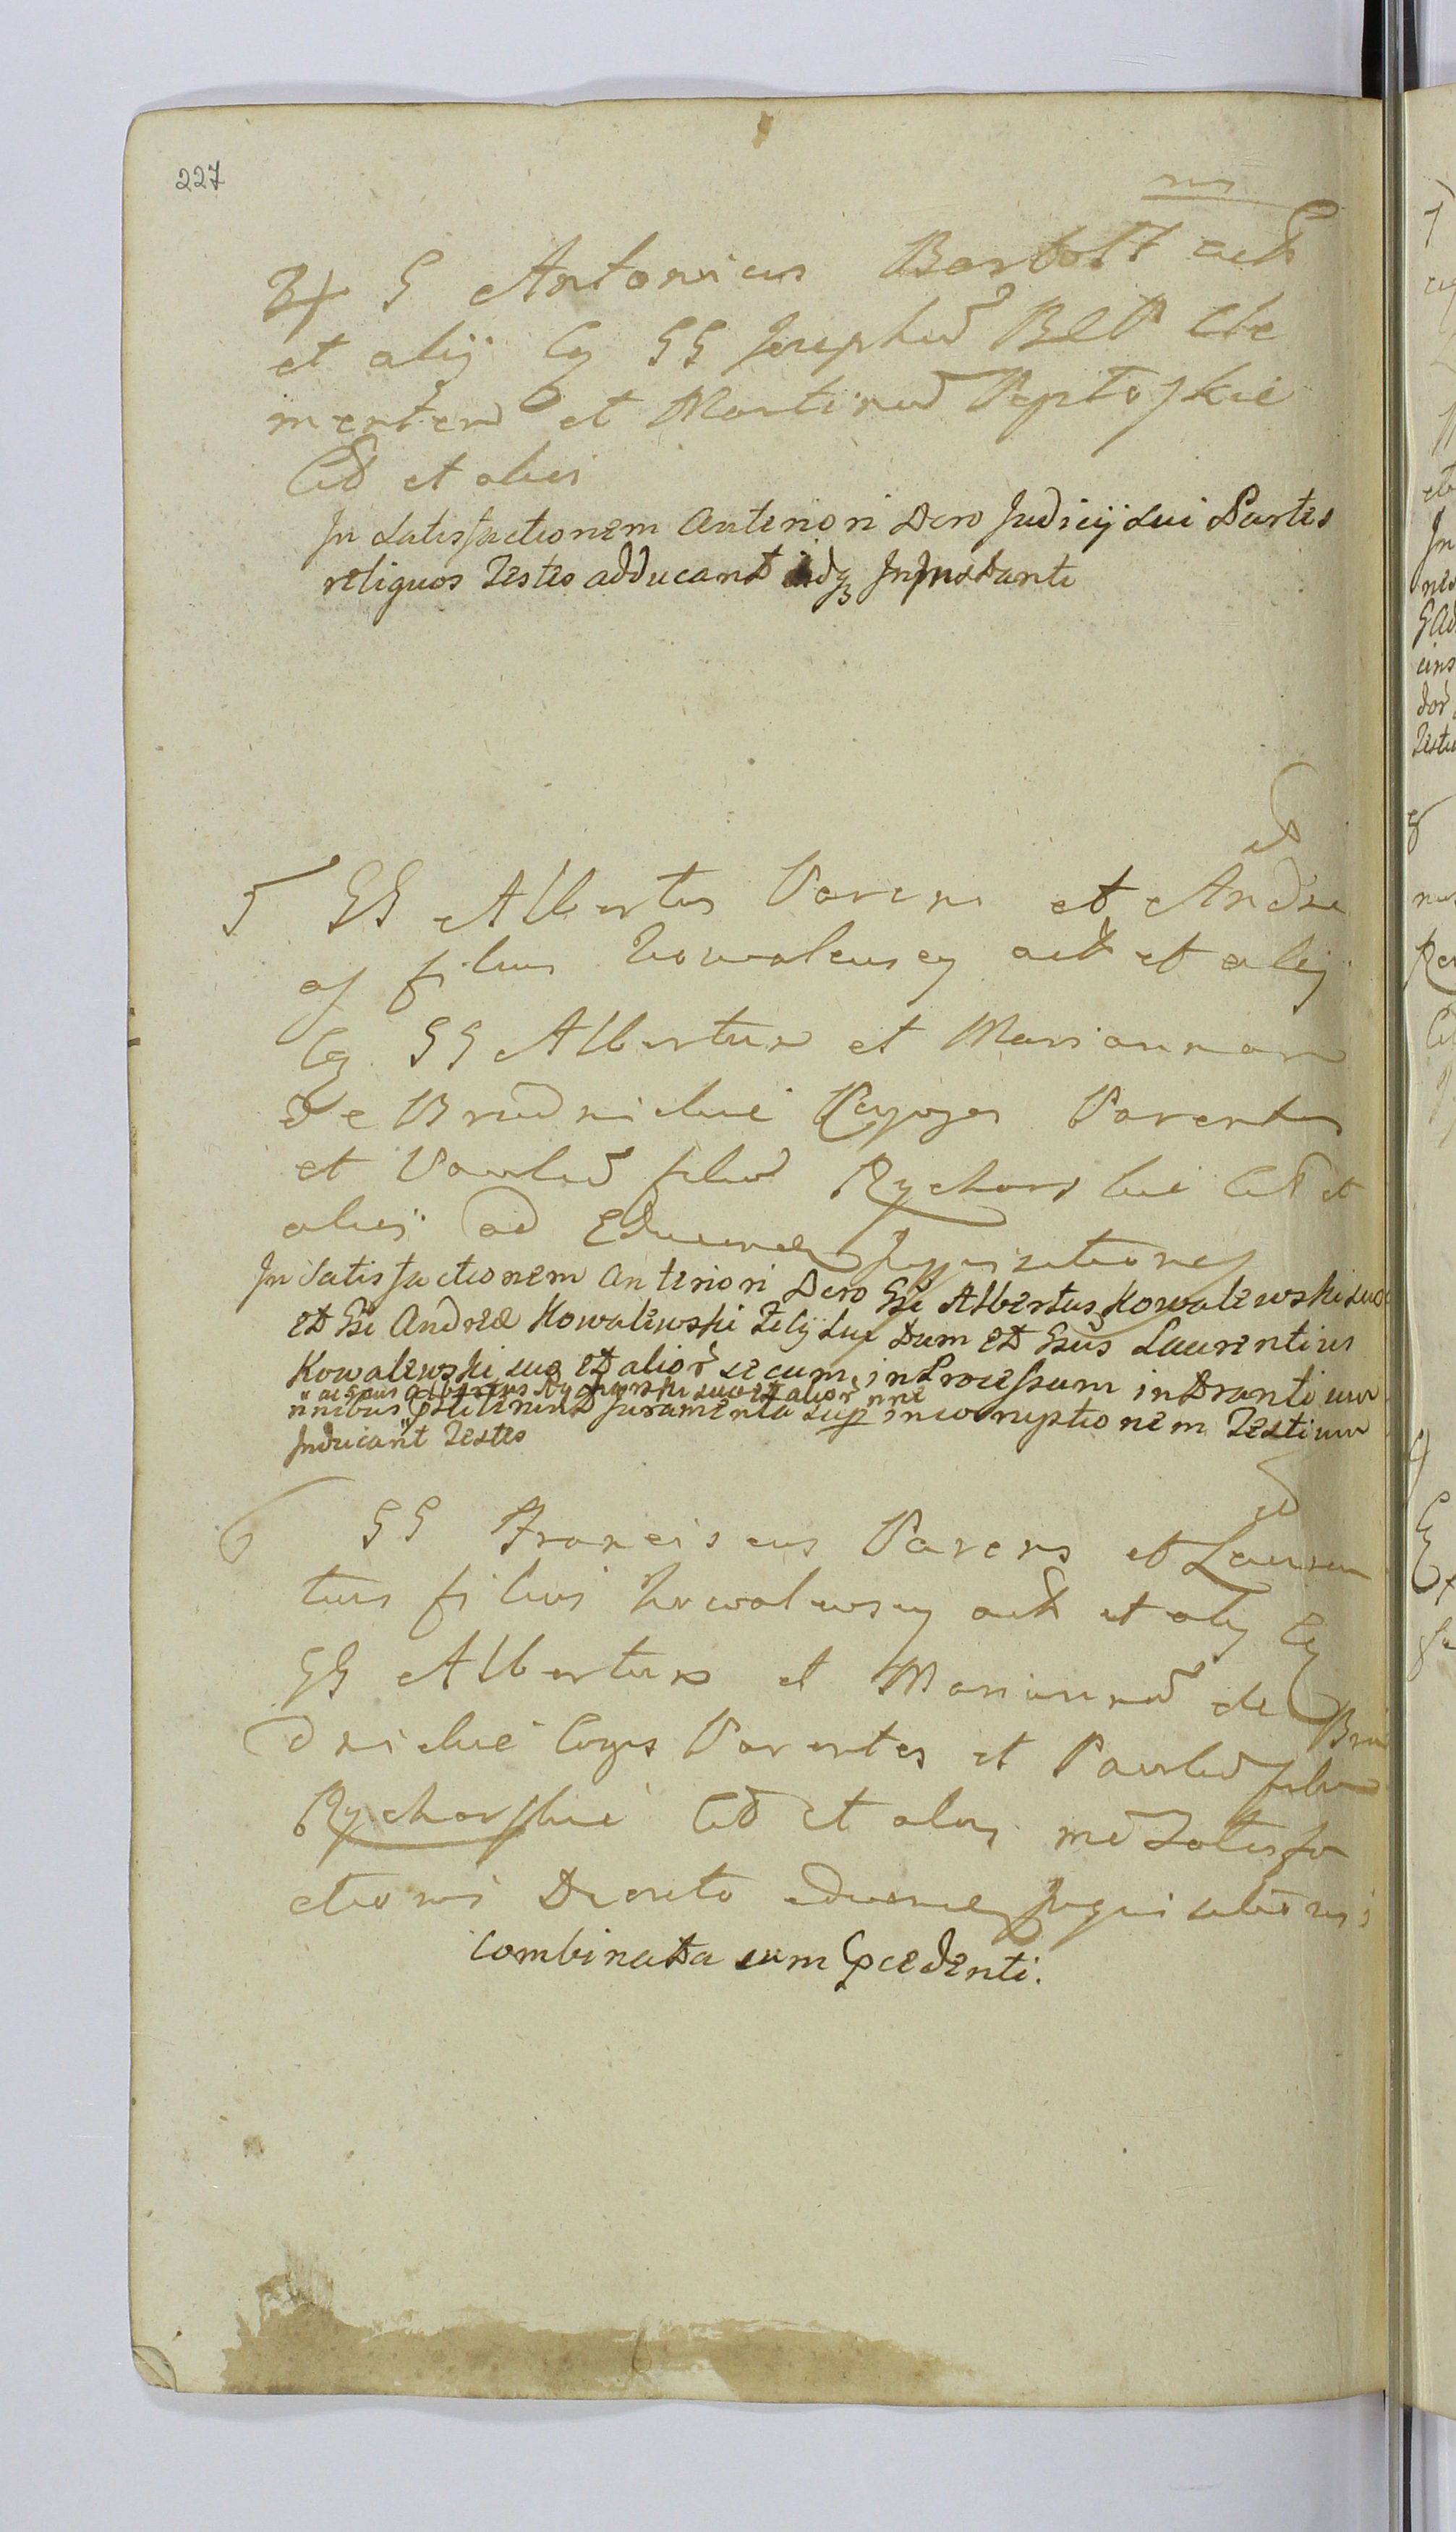 227
4 G Antonius Bartolt act
et alij Cq GG Josephū BRP Cle
mentem et Martinū Peptoskie
Citt et alios
In Satisfactionem Anteriori Dcro Judicij Sui Partes
reliquos Testes adducant idq Ininstanti
5 GG Albertus Parens et Andre
as filius Kowalewscy act et alij
Cq GG Albertum et Mariannam
de Brudnickie Conjuges Parentes
et Paulū filiū Rychorskie Citt et
alios ad Educend Inquisitiones
In Satisfactionem Anteriori Dcro Gsi Albertus Kowalewski suo
et Gsi Andreæ Kowalewski Filij Sui tum et Gsus Laurentius
Kowalewski suo et alior secum in Processum intrantium
ac Gsus Albertus Rychorski suo et alior nne
nnibus pstiterint Juramenta sup incorruptionem Testium
Inducant Testes
6 GG Franciscus Parens et Lauren
tius filius Kowalewscy act et alij Cq
GG Albertum et Mariannā de Bru
dnickie Cojges Parentes et Paulū filium
Rychorskie Citt et alios Satisfa
ctionis Decreto educend Inquisitionis
Combinata cum Pcedenti.